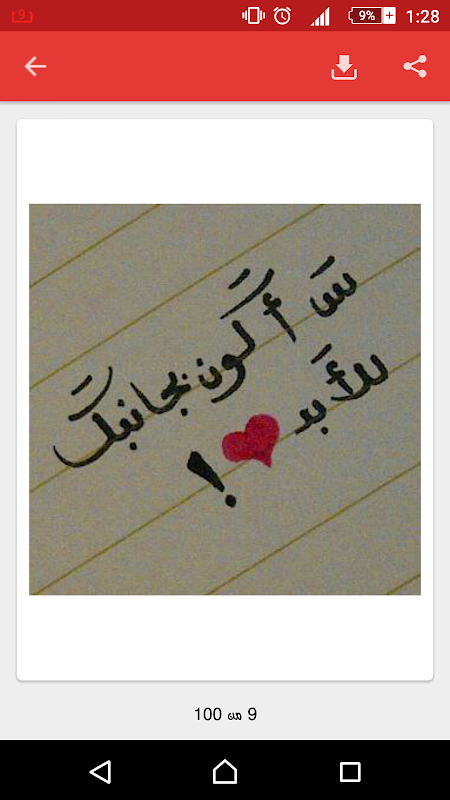 9
9% 1:28
سَ أكون بجانبك
للأبد !
100 من 9